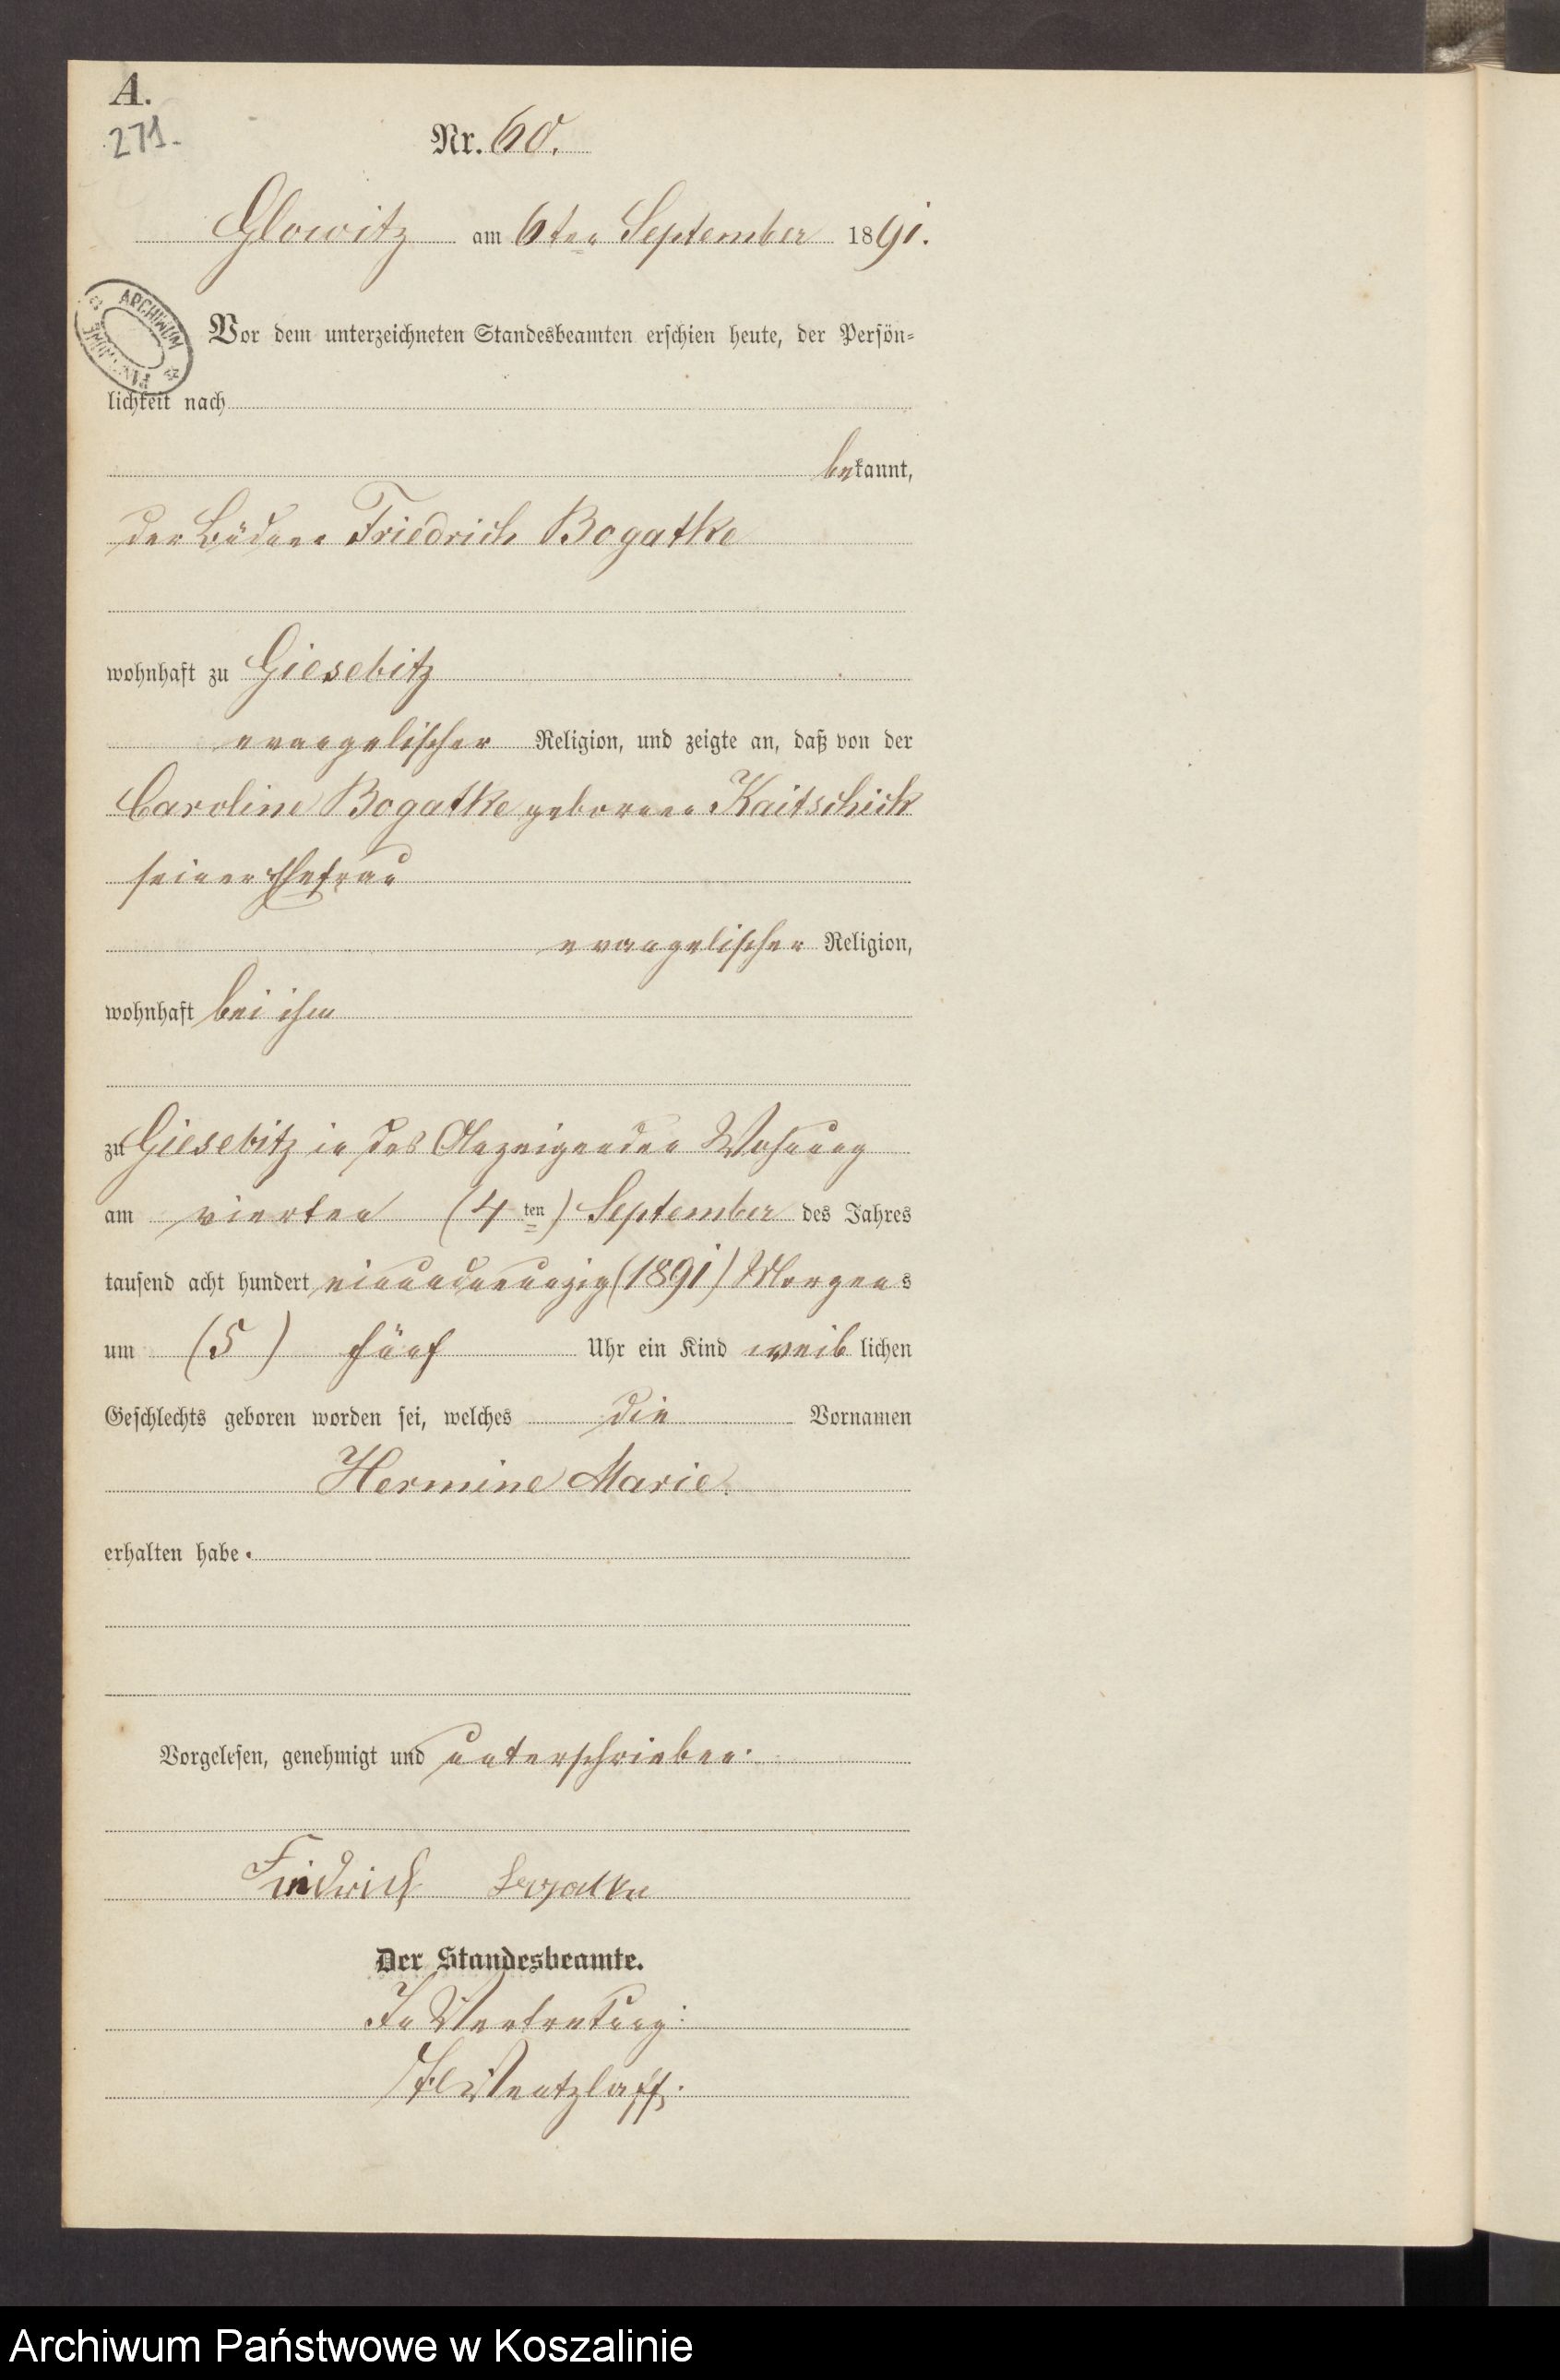 A.
271.
Nr. 60.
Glowitz am 6ten September 1891.
ARCHIWUM
Vor dem unterzeichneten Standesbeamten erschien heute, der Persön-
lichkeit nach
bekannt,
der Büdner Friedrich Bogatke
wohnhaft zu Giesebitz
evangelischer Religion, und zeigte an, daß von der
Caroline Bogatke geborene Kaitschick
seiner Ehefrau
evangelischer Religion,
wohnhaft bei ihm
zu Giesebitz in des Anzeigenden Wohnung
am vierten (4ten) September des Jahres
tausend acht hundert einundneunzig (1891) Morgens
um (5) fünf Uhr ein Kind weiblichen
Geschlechts geboren worden sei, welches die Vornamen
Hermine Marie.
erhalten habe.
Vorgelesen, genehmigt und unterschrieben:
Friedrich Bogatke
Der Standesbeamte.
In Vertretung:
Wentzlaff.
Archiwum Państwowe w Koszalinie